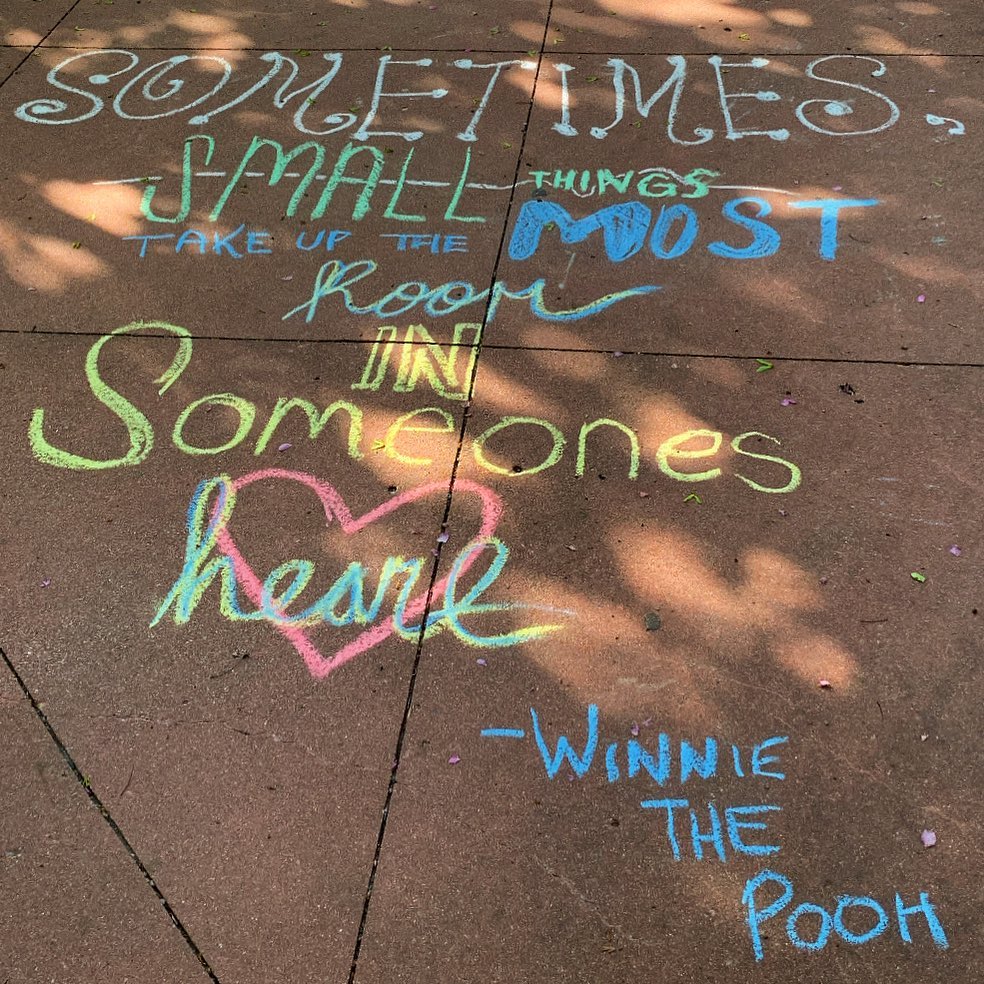 SOMETIMES,
SMALL THINGS
TAKE UP THE MOST
Room
IN
Someones
heart
-WINNIE
THE
POOH